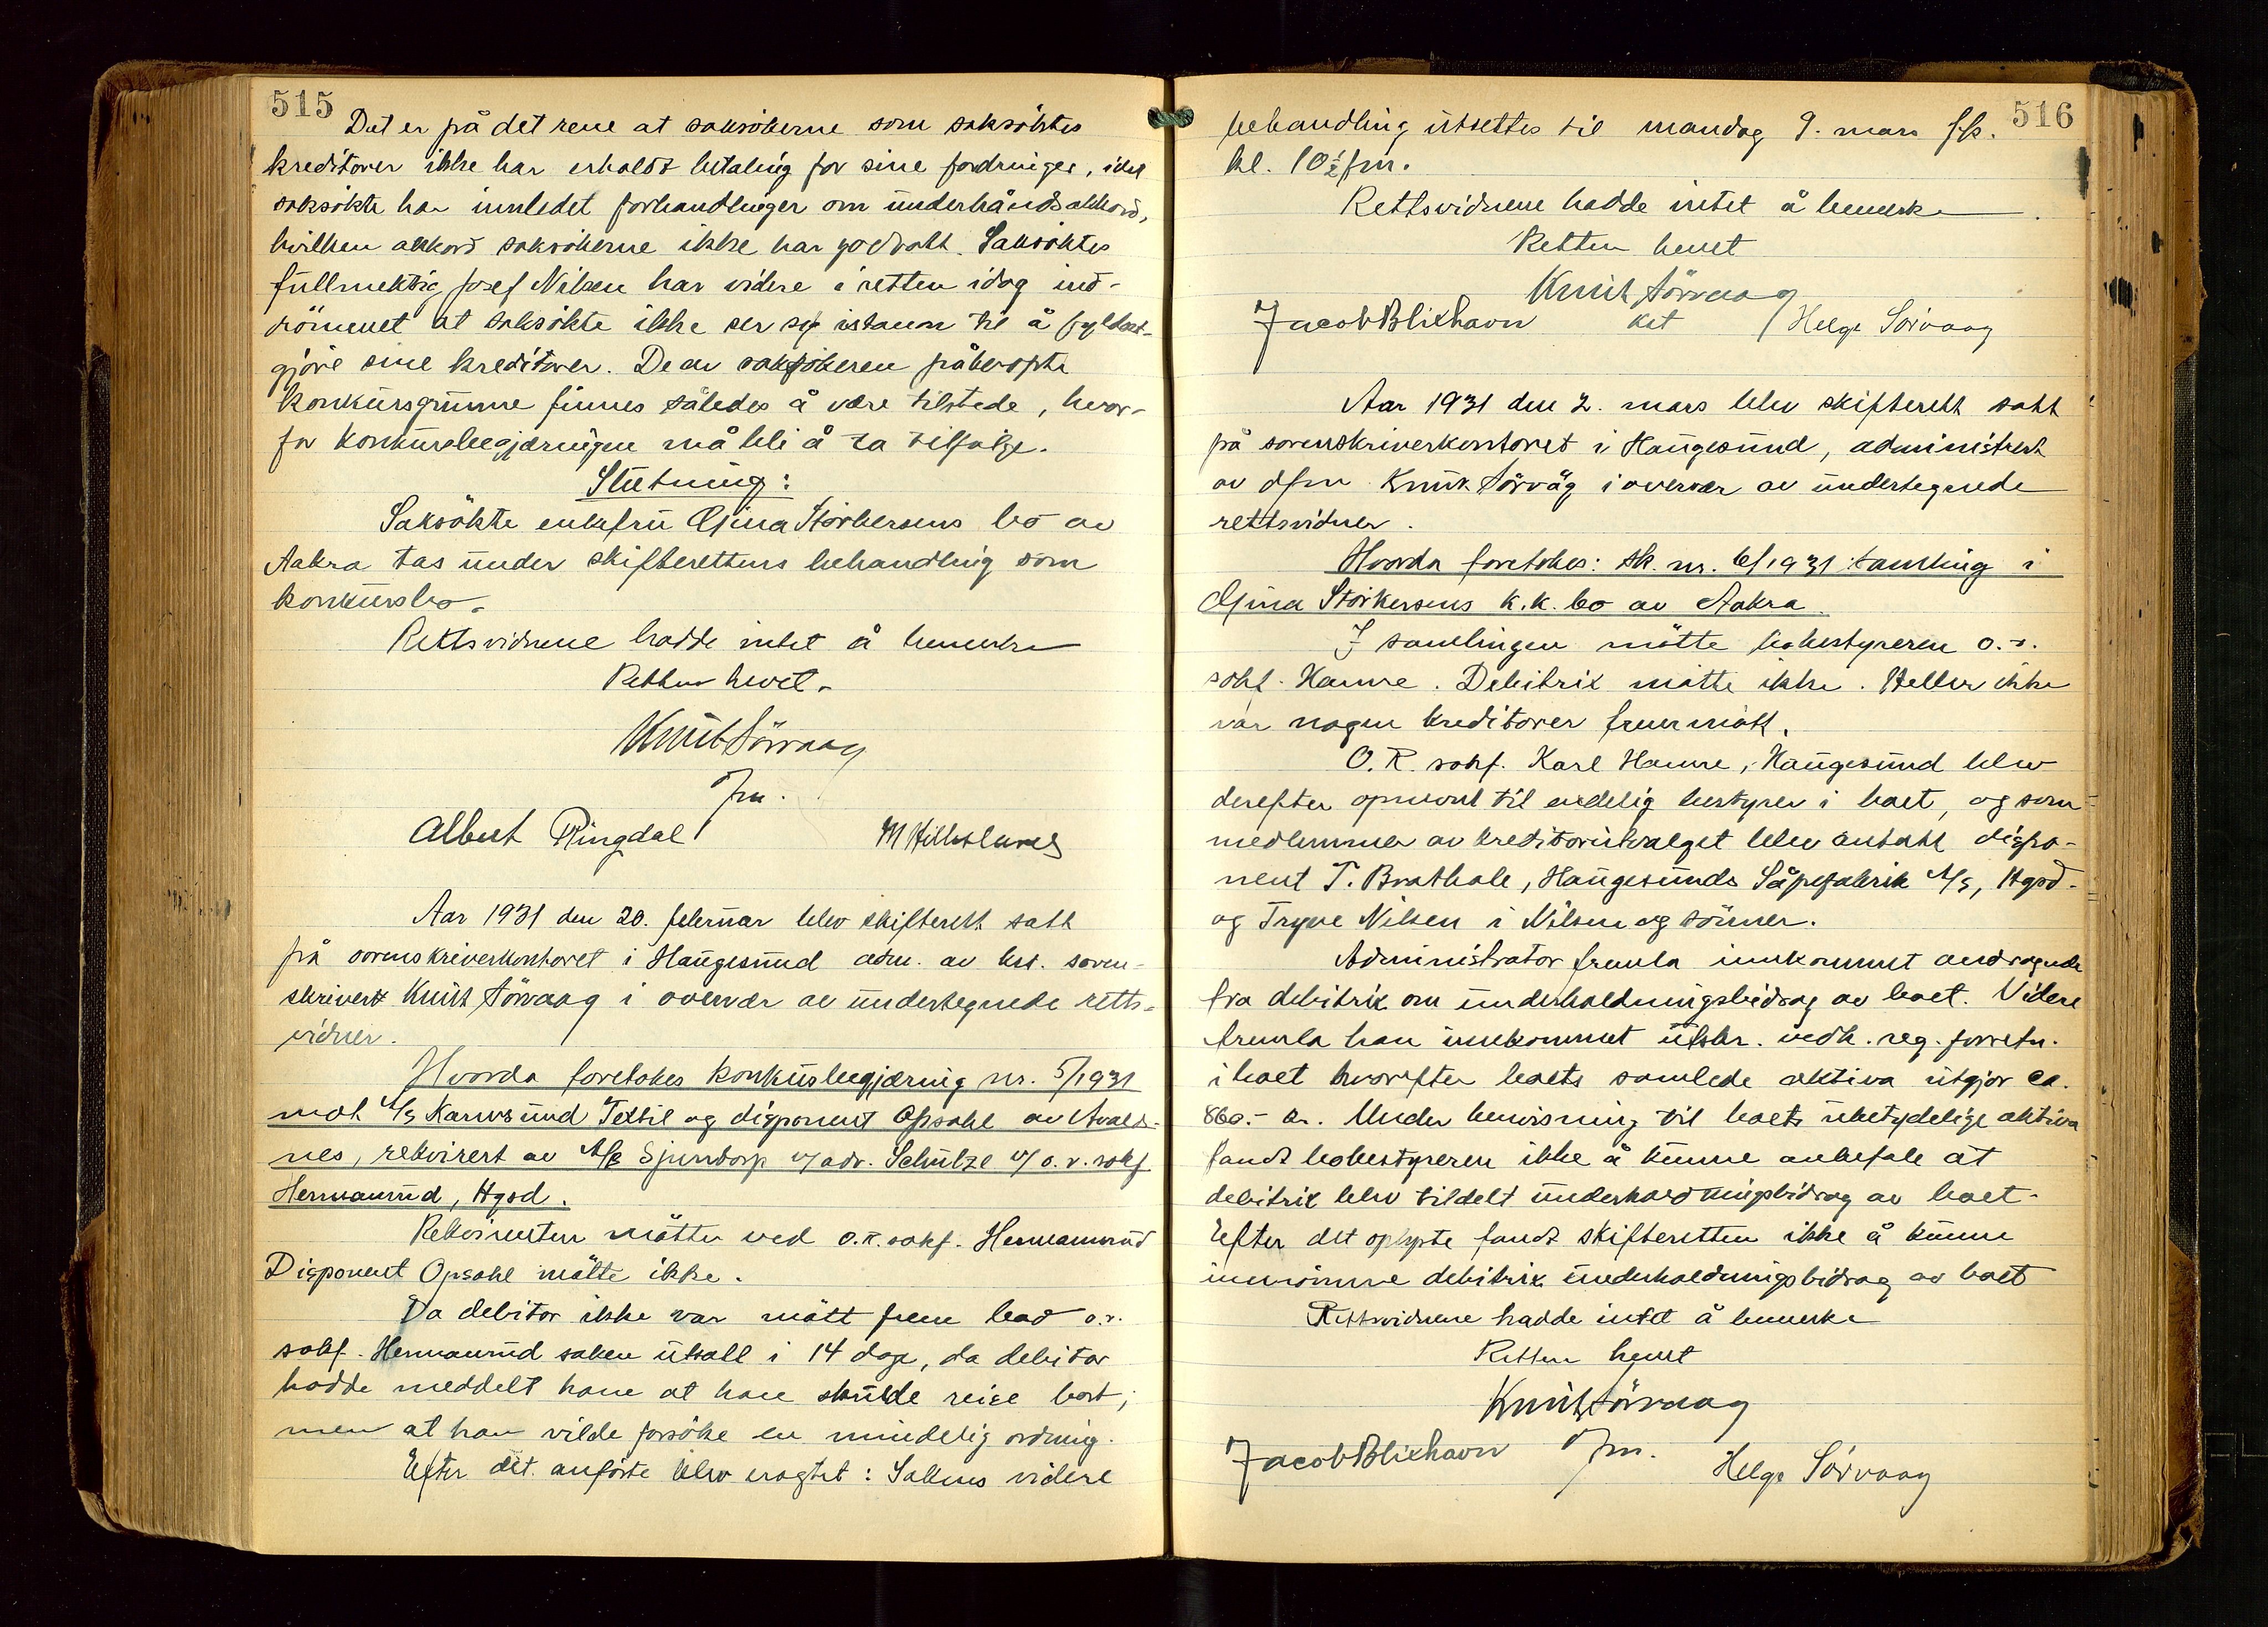 515
Det er på det rene at saksökerne som saksöktes
kreditorer ikke har erholdt betaling for sine fordringer, idet
saksökte har innledet forhandlinger om underhåndsakkord,
hvilken akkord saksökerne ikke har godtatt. Saksöktes
fullmektig Josef Nilsen har videre i retten idag ind-
römmet at saksökte ikke ser sig istann til å fyldest-
gjöre sine kreditorer. De av saksökeren påberopte
konkursgrunne finnes således å være tilstede, hvor-
for konkursbegjæringen må bli å ta tilfölge.
Slutning:
Saksökte enkefru Gjina Storkersens bo av
Aakra tas under skifterettens behandling som
konkursbo.
Rettsvidnene hadde intet å bemerke
Retten hevet.
Knut Sörvaag
fm.
Albert Ringdal
Aar 1931 den 20. februar blev skifterett satt
på sorenskriverkontoret i Haugesund adm. av kst. soren-
skriver Knut Sörvaag i overvær av undertegnede retts-
vidner.
Hvorda foretokes konkursbegjæring nr. 5/1931
mot A/S Karmsund Textil og disponent Opsahl av Avalds-
nes, rekvirert av A/B Sjuntorp v/ adv. Schulze v/ o.r.sakf.
Hermanrud, Hgsd.
Rekvirenten mötte ved o.r.sakf. Hermanrud
Disponent Opsahl mötte ikke.
Da debitor ikke var mött frem bad o.r.
sakf. Hermanrud saken utsatt i 14 dage, da debitor
hadde meddelt ham at han skulde reise bort,
men at han vilde forsöke en mindelig ordning.
Efter det anförte blev eragtet: Sakens videre
516
behandling utsettes til mandag 9. mars fk.
kl. 10½ fm.
Rettsvidnene hadde intet å bemerke.
Retten hevet
Knut Sörvaag
kst
Jacob Blikhavn Helge Sörvaag
Aar 1931 den 2. mars blev skifterett satt
på sorenskriverkontoret i Haugesund, administrert
av dfm Knut Sörvåg i overvær av undertegnede
rettsvidner.
Hvorda foretokes: sk. nr. 6/1931: samling i
Gjina Storkersens k.k. bo av Aakra.
I samlingen mötte bobestyreren o.r.
sakf. Hamre. Debitrix mötte ikke. Heller ikke
var nogen kreditorer fremmött.
O.R. sakf. Karl Hamre, Haugesund blev
derefter opnevnt til endelig bestyrer i boet, og som
medlemmer av kreditorutvalget blev antatt dispo-
nent T. Brathole, Haugesunds Såpefabrik A/S, Hgsd.
og Trygve Nilsen i Nilsen og sönner.
Administrator fremla innkommet andragende
fra debitrix om underholdningsbidrag av boet. Videre
fremla han innkommet utskr. vedk. reg. forretn.
i boet hvorefter boets samlede aktiva utgjor ca.
860.- kr. Under henvisning til boets ubetydelige aktiva
fandt bobestyreren ikke å kunne anbefale at
debitrix blev tildelt underholdningsbidrag av boet.
Efter det oplyste fandt skifteretten ikke å kunne
innrömme debitrix underholdningsbidrag av boet
Rettsvidnene hadde intet å bemerke
Retten hevet
Knut Sörvaag
fm.
Jacob Blikhavn Helge Sörvaag